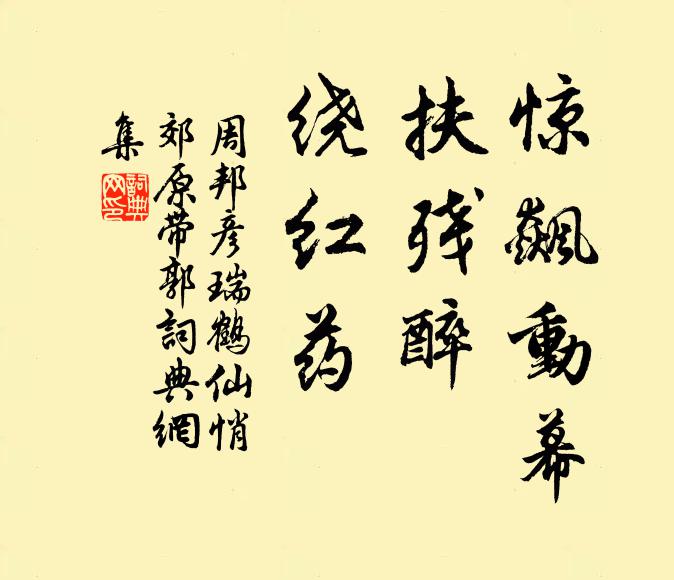 惊飙動幕
扶残醉
绕红药
周邦彦瑞鹤仙悄
郊原带郭詞典網
集
詞典
网印